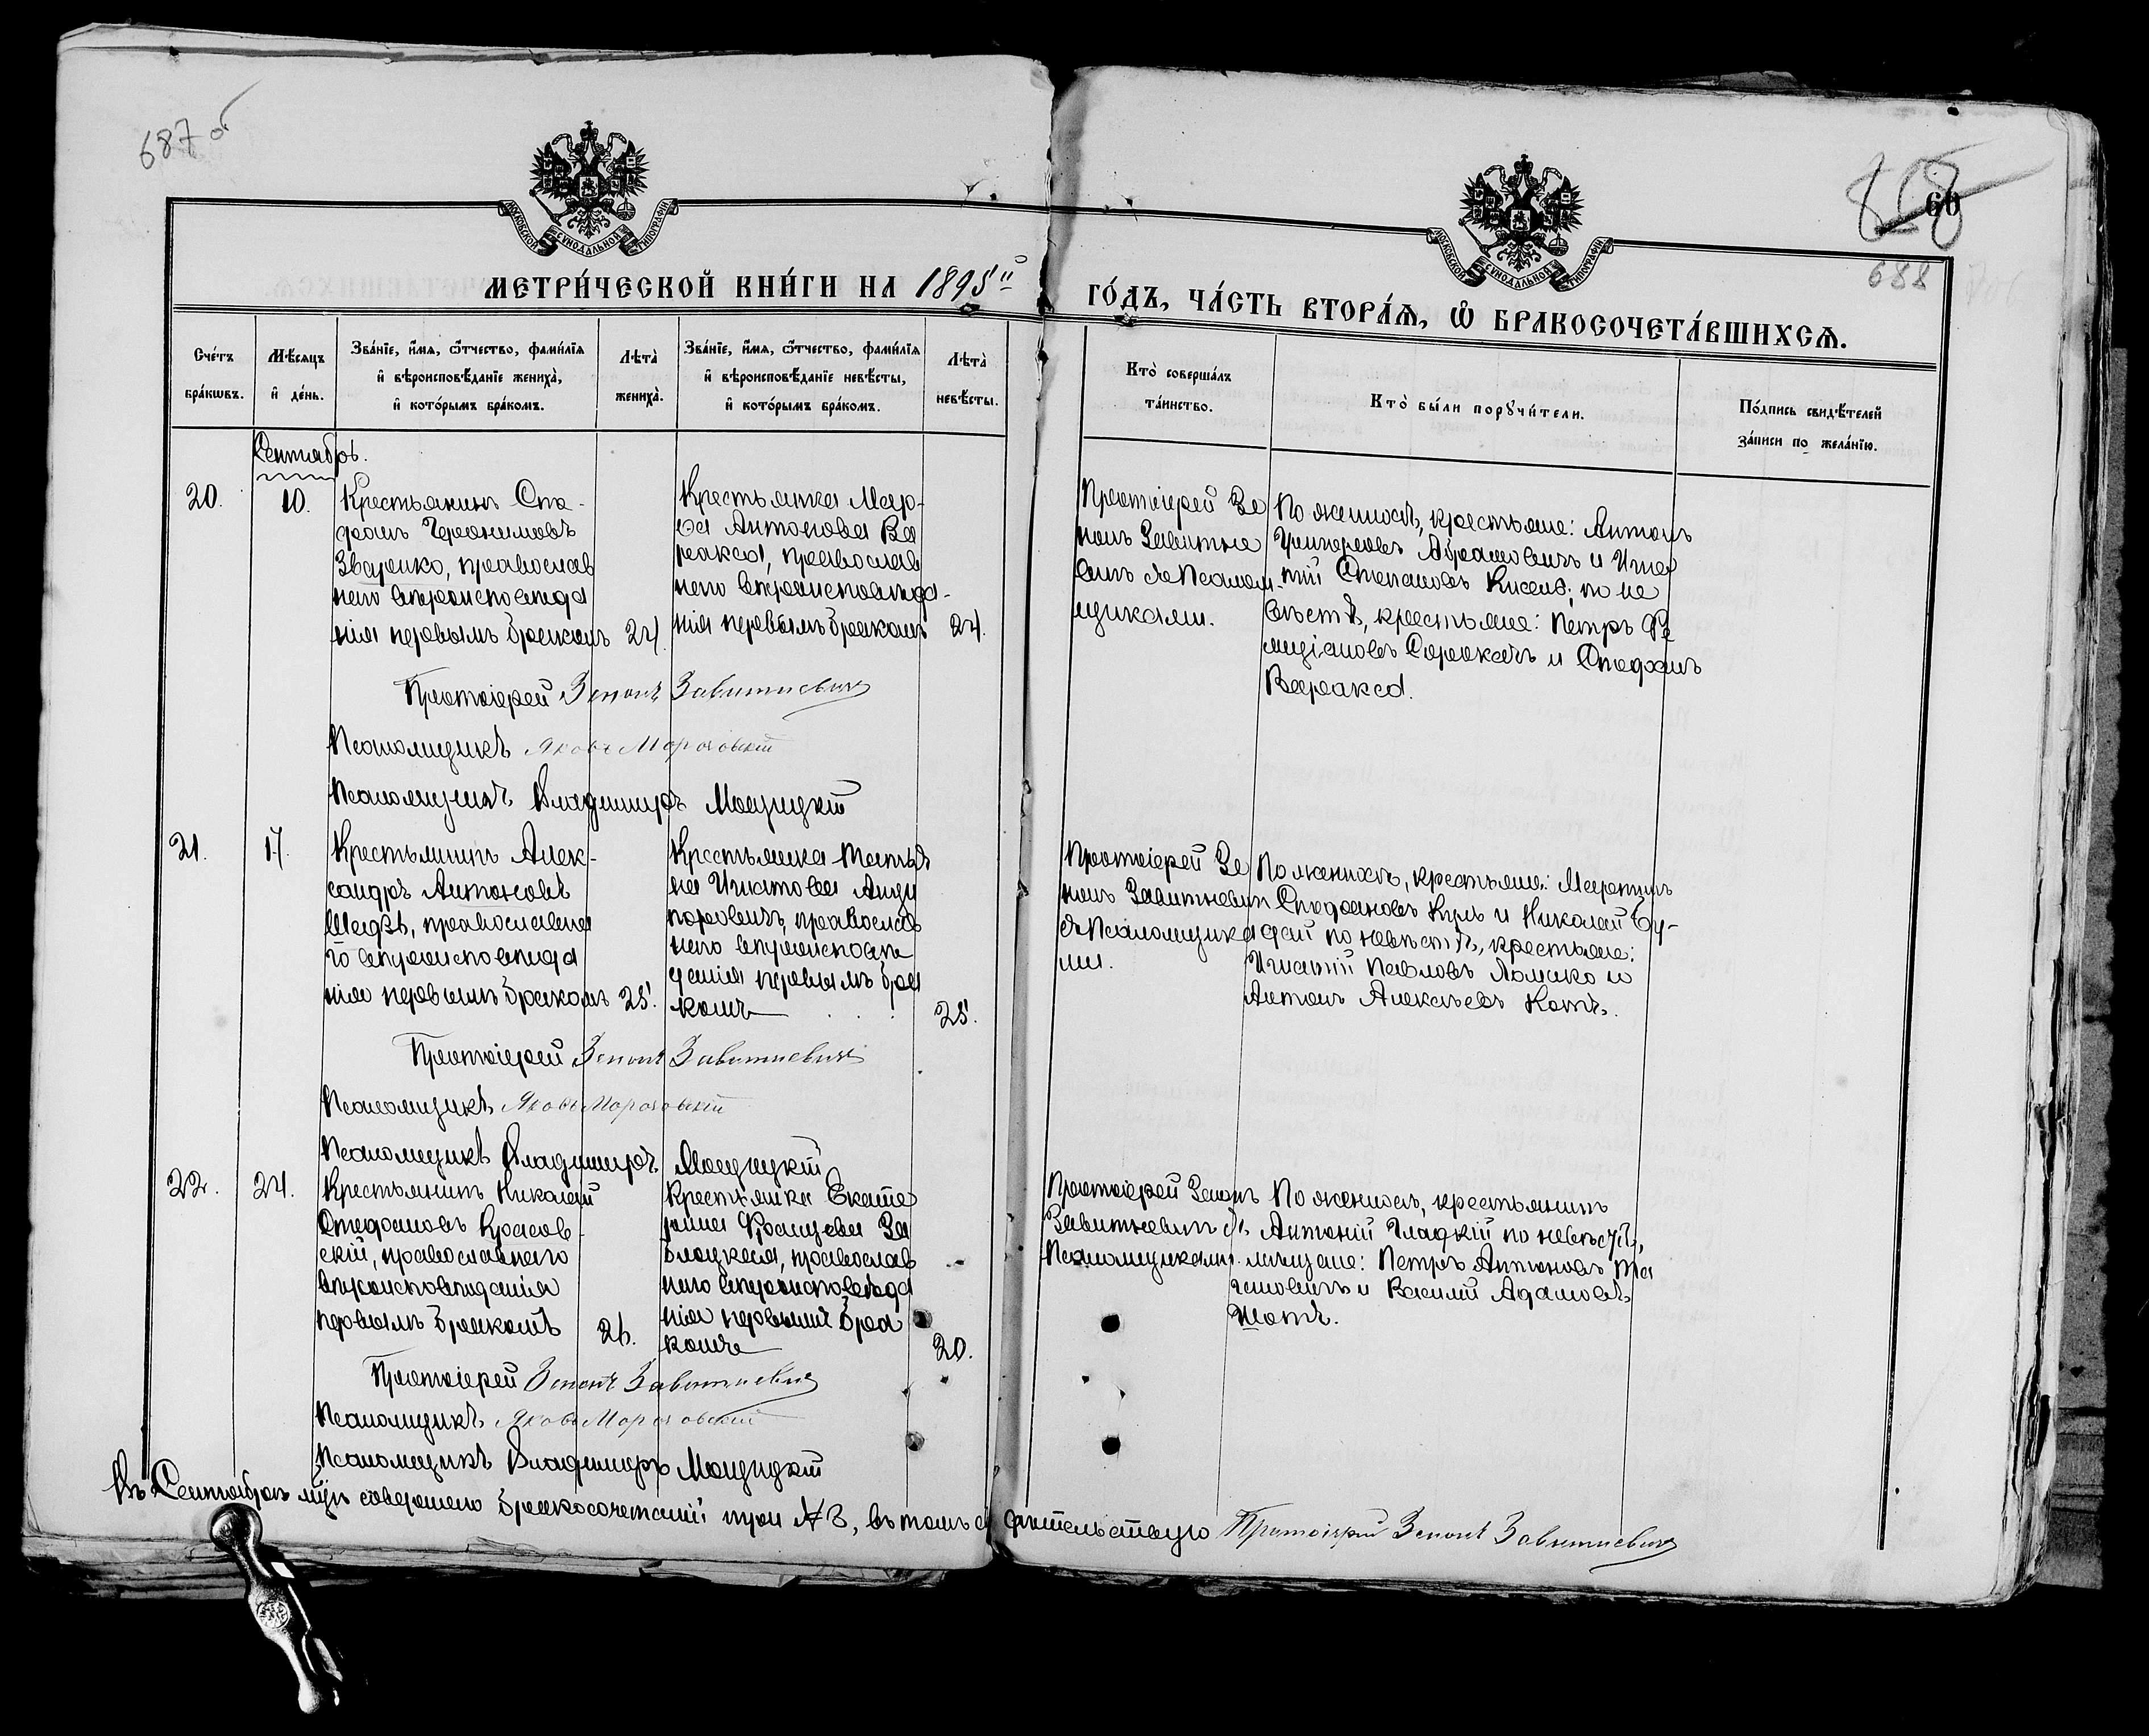 687 об
60
688
МЕТРИ́ЧЕСКОЙ КНИ́ГИ НА 1895й
ГО́ДЪ, ЧА́СТЬ ВТОРА́Ѧ, Ѽ БРАКОСОЧЕТА́ВШИХСѦ.
Сче́тъ
бра́кѡвъ.
Мѣ́сяцъ
и҆ де́нь.
Зва́нїе, и҆́мя, ѻ҆́тчество, фами́лїя
и҆ вѣроисповѣ́данїе жениха̀,
и҆ кото́рымъ бра́комъ.
Лѣта̀
жениха̀.
Зва́нїе, и҆́мя, ѻ҆́тчество, фами́лїя
и҆ вѣроисповѣ́данїе невѣ́сты,
и҆ кото́рымъ бра́комъ.
Лѣта̀
невѣ́сты.
Кто̀ соверша́лъ
та́инство.
Кто̀ бы́ли порꙋчи́тели.
По́дпись свидѣ́телей
за́писи по жела́нїю.
Сентябрь.
20.
10.
Крестьянинъ Сте-
фанъ Іеронимовъ
Зваренко, православ
наго вѣроисповѣда
нія первымъ бракомъ
24.
Крестьянка Мар-
ѳа Антонова Ва
ракса, православ
наго вѣроисповѣда-
нія первымъ бракомъ
24.
Протоіерей Зе
нонъ Завитне
вичъ съ Псалом-
щиками.
По женихѣ, крестьяне: Антонъ
Григорьевъ Абрамовичъ и Игна
тій Степановъ Кисель; по не
вѣстѣ, крестьяне: Петръ Де
мидіановъ Сорокачъ и Стефанъ
Варакса.
Протоіерей Зенонъ Завитневичъ
Псаломщикъ Яковъ Морозовскій
Псаломщикъ Владимиръ Мацицкій
21.
17.
Крестьянинъ Алек-
сандръ Антоновъ
Шедзь, православна
го вѣроисповѣда
нія первымъ бракомъ
25.
Крестьянка Татья
на Игнатова Анци
поровичъ, православ
наго вѣроисповѣ
данія первымъ бра
комъ
25.
Протоіерей Зе
нонъ Завитневичъ
съ Псаломщика
ми.
По женихѣ, крестьяне: Мартинъ
Стефановъ Куль и Николай Бу-
дай по невѣстѣ, крестьяне:
Игнатій Павловъ Ломако и
Антонъ Алексѣевъ Котъ.
Протоіерей Зенонъ Завитневичъ
Псаломщикъ Яковъ Морозовскій
Псаломщикъ Владимиръ Мацицкій
22.
24.
Крестьянинъ Николай
Стефановъ Красов-
скій, православнаго
вѣроисповѣданія
первымъ бракомъ
26.
Крестьянка Екате
рина Францева За
блоцкая, православ
наго вѣроисповѣда
нія первымъ бра
комъ
20.
Протоіерей Зенонъ
Завитневичъ съ
Псаломщиками.
По женихѣ, крестьянинъ
Антоній Гладкій по невѣстѣ,
мѣщане: Петръ Антоновъ Та
членовичъ и Василій Адамовъ
Шотъ.
Протоіерей Зенонъ Завитневичъ
Псаломщикъ Яковъ Морозовскій
Псаломщикъ Владимиръ Мацицкій
Въ Сентябрѣ мцѣ совершено бракосочетаній три №3, въ томъ свидѣтельствую Протоіерей Зенонъ Завитневичъ